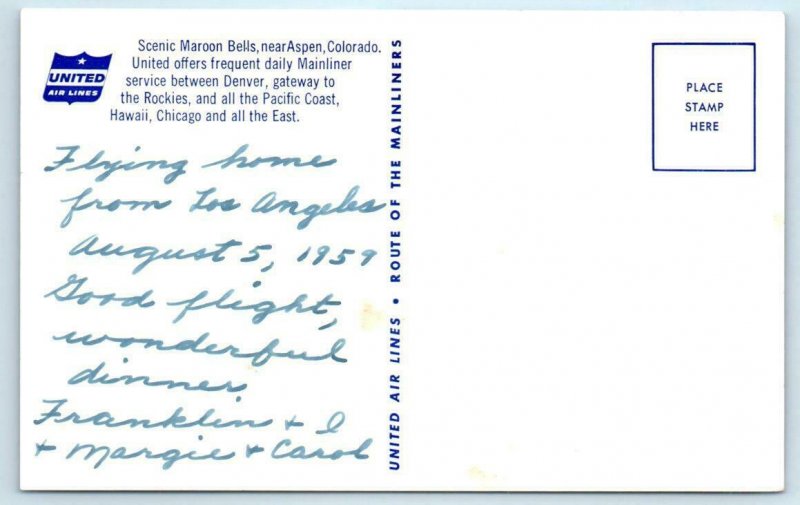 UNITED
AIR LINES
Scenic Maroon Bells, near Aspen, Colorado.
United offers frequent daily Mainliner
service between Denver, gateway to
the Rockies, and all the Pacific Coast,
Hawaii, Chicago and all the East.
Flying home
from Los Angeles
August 5, 1959
Good flight,
wonderful
dinner
Franklin + I
+ Margie + Carol
UNITED AIR LINES • ROUTE OF THE MAINLINERS
PLACE
STAMP
HERE